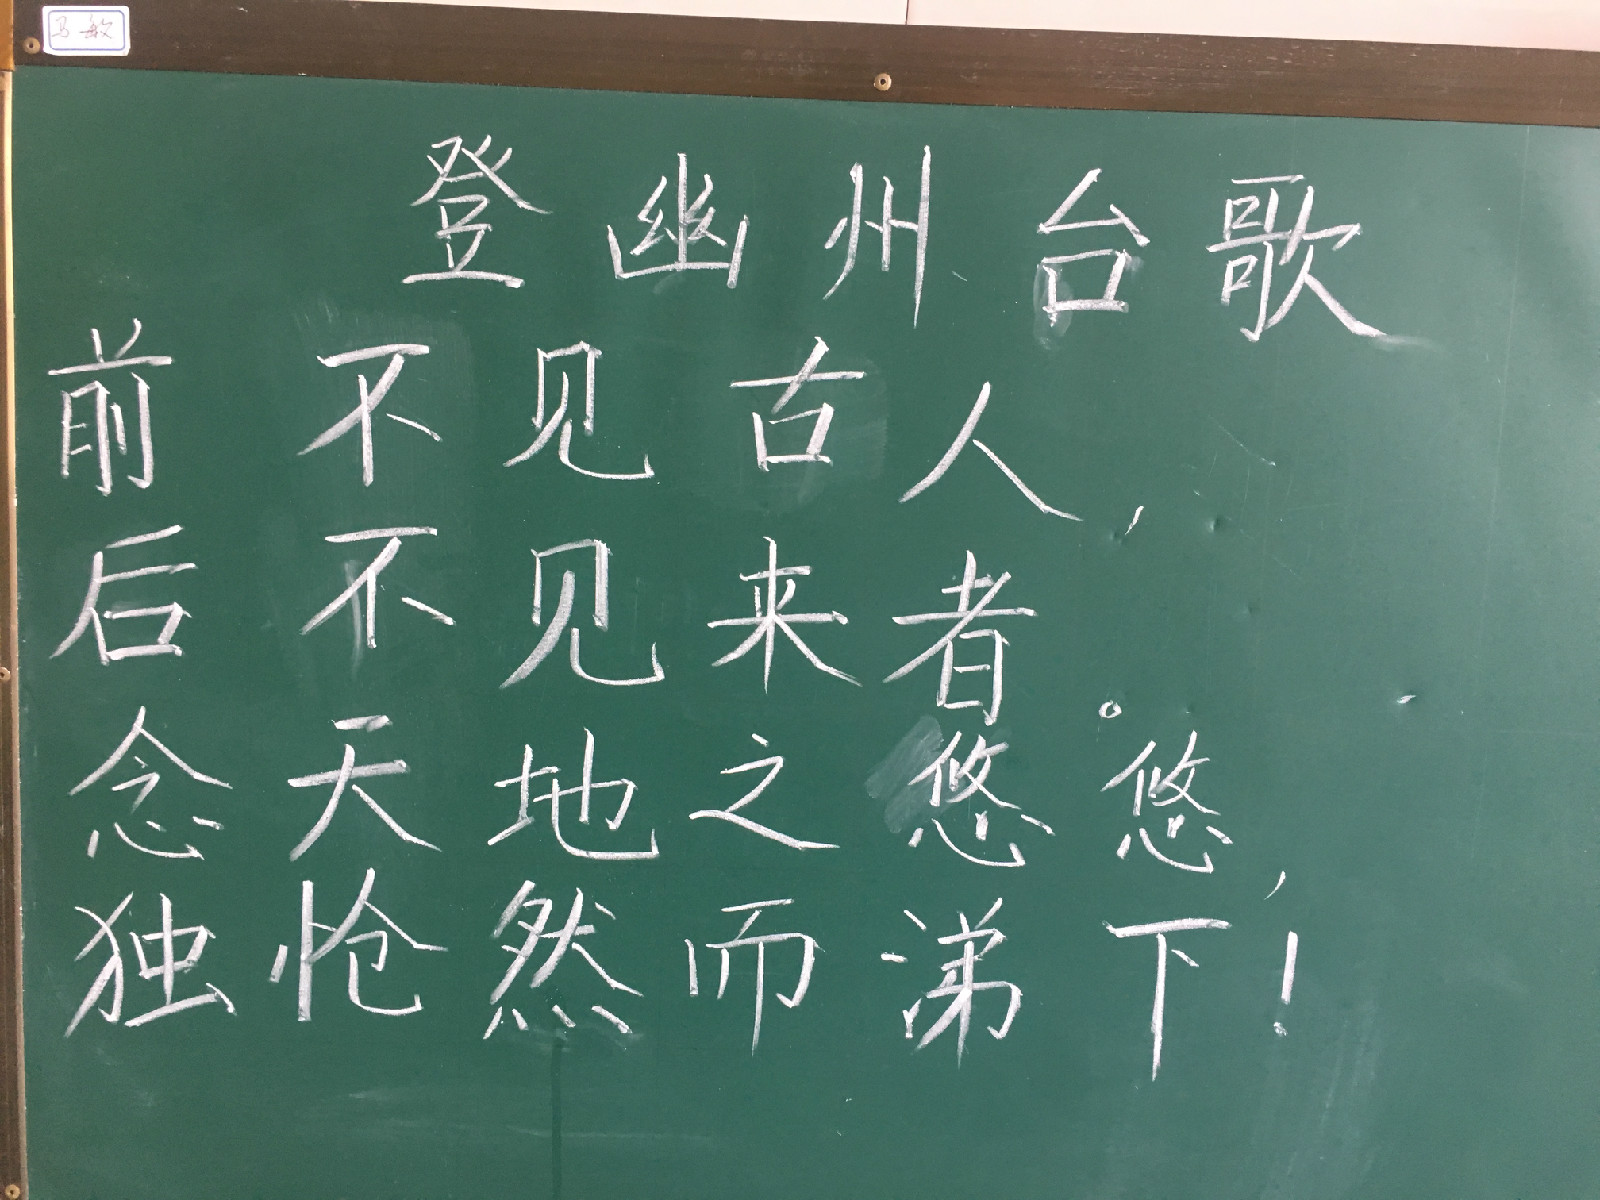 马敏
登幽州台歌
前不见古人,
后不见来者。
念天地之悠悠,
独怆然而涕下!